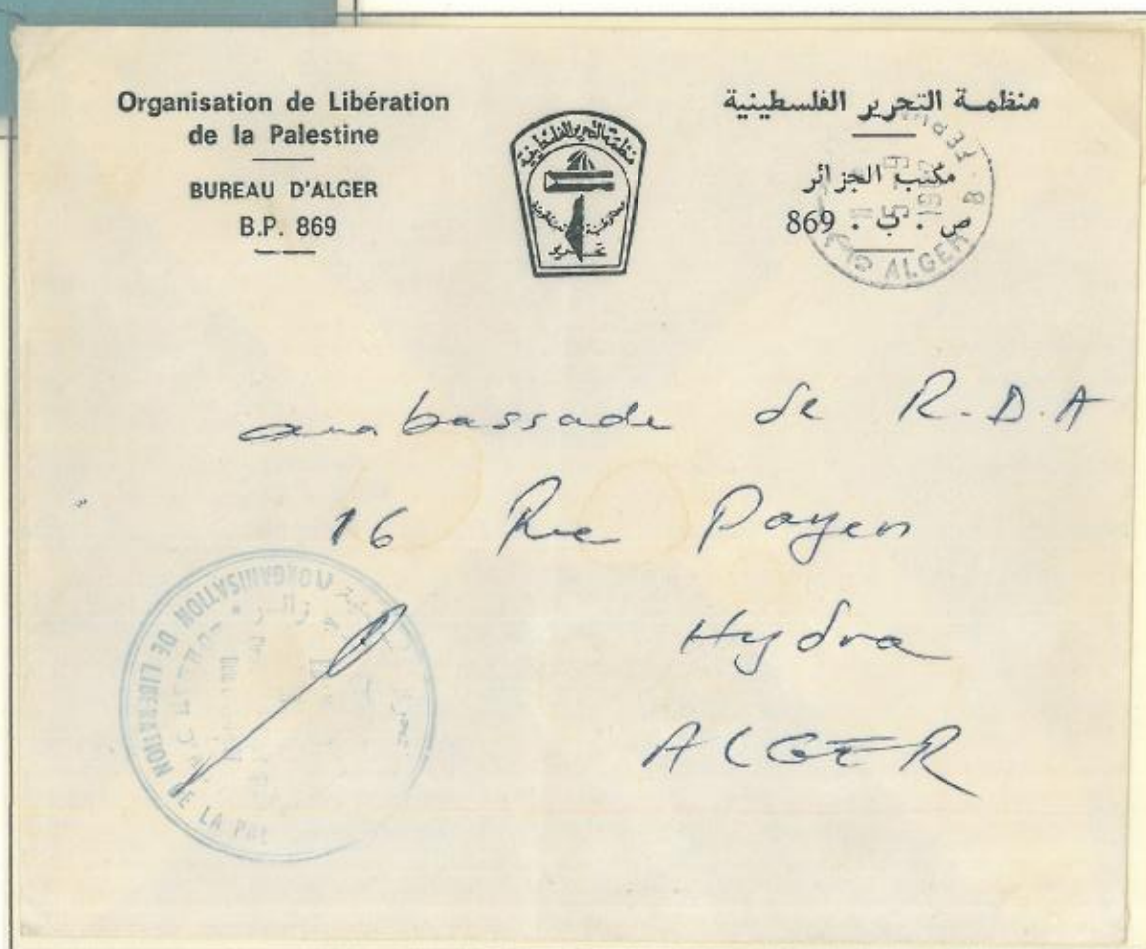 Organisation de Libération
de la Palestine
BUREAU D'ALGER
B.P. 869
منظمة التحرير الفلسطينية
منظمة التحرير الفلسطينية
مكتب الجزائر
ص . ب . 869
ALGER
ambassade de R.D.A
16 Rue Payen
Hydra
ALGER
ORGANISATION DE LIBERATION DE LA PAL